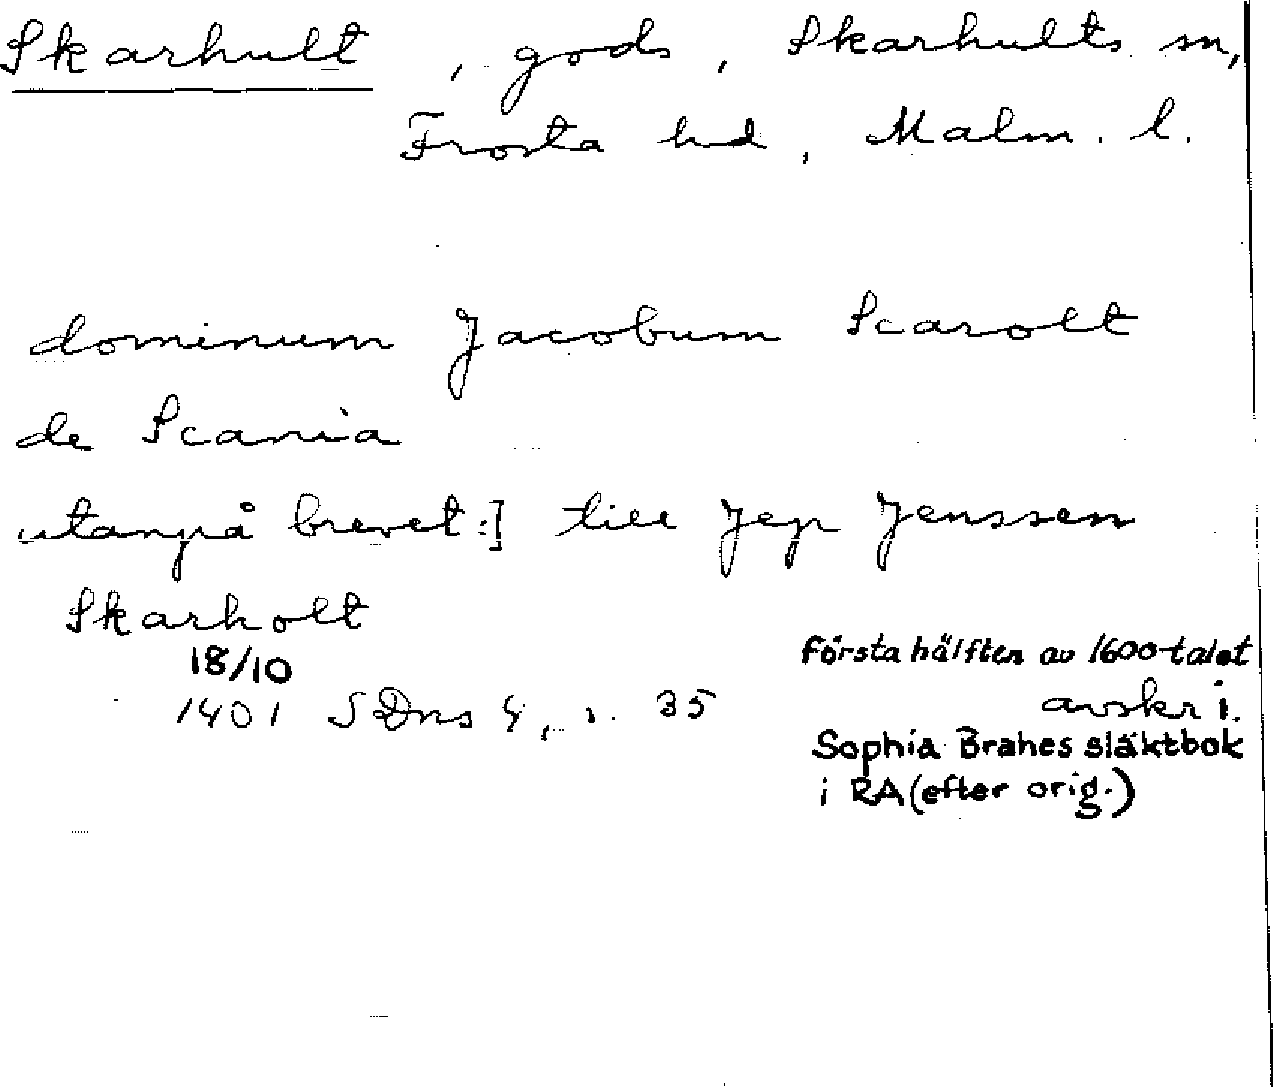 Skarhult, gods, Skarhults sn,
Frosta hd, Malm. l.
dominum Jacobum Scarolt
de Scania
utanpå brevet:] till Jep Jenssen
Skarholt
18/10
1401 SDns 4, s. 35
Första hälften av 1600-talet
avskr i.
Sophia Brahes släktbok
i RA (efter orig.)